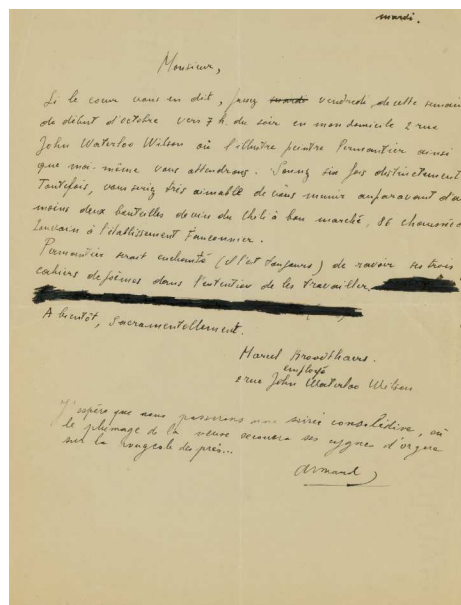 mardi.
Monsieur,
Si le cœur vous en dit, passez mardi vendredi, de cette semaine
de début d'octobre vers 7 h. du soir en mon domicile 2 rue
John Waterloo Wilson où l'illustre peintre Permantier ainsi
que moi-même vous attendrons. Sonnez six fois distinctement
Toutefois, vous seriez très aimable de vous munir auparavant d'au
moins deux bouteilles de vin du Chili à bon marché, 86 chaussée d
Louvain à l'établissement Fauconnier.
Permantier serait enchanté (il l'est toujours) de ravoir ses trois
cahiers de poèmes dans l'intention de les travailler.
A bientôt, Sacramentellement.
Marcel Broodthaers.
employé
2 rue John Waterloo Wilson
J'espère que nous passerons une soirée consolédive, où
le plumage de la veuve ses cygnes d'orgue
sur la rougeole des prés...
Armand